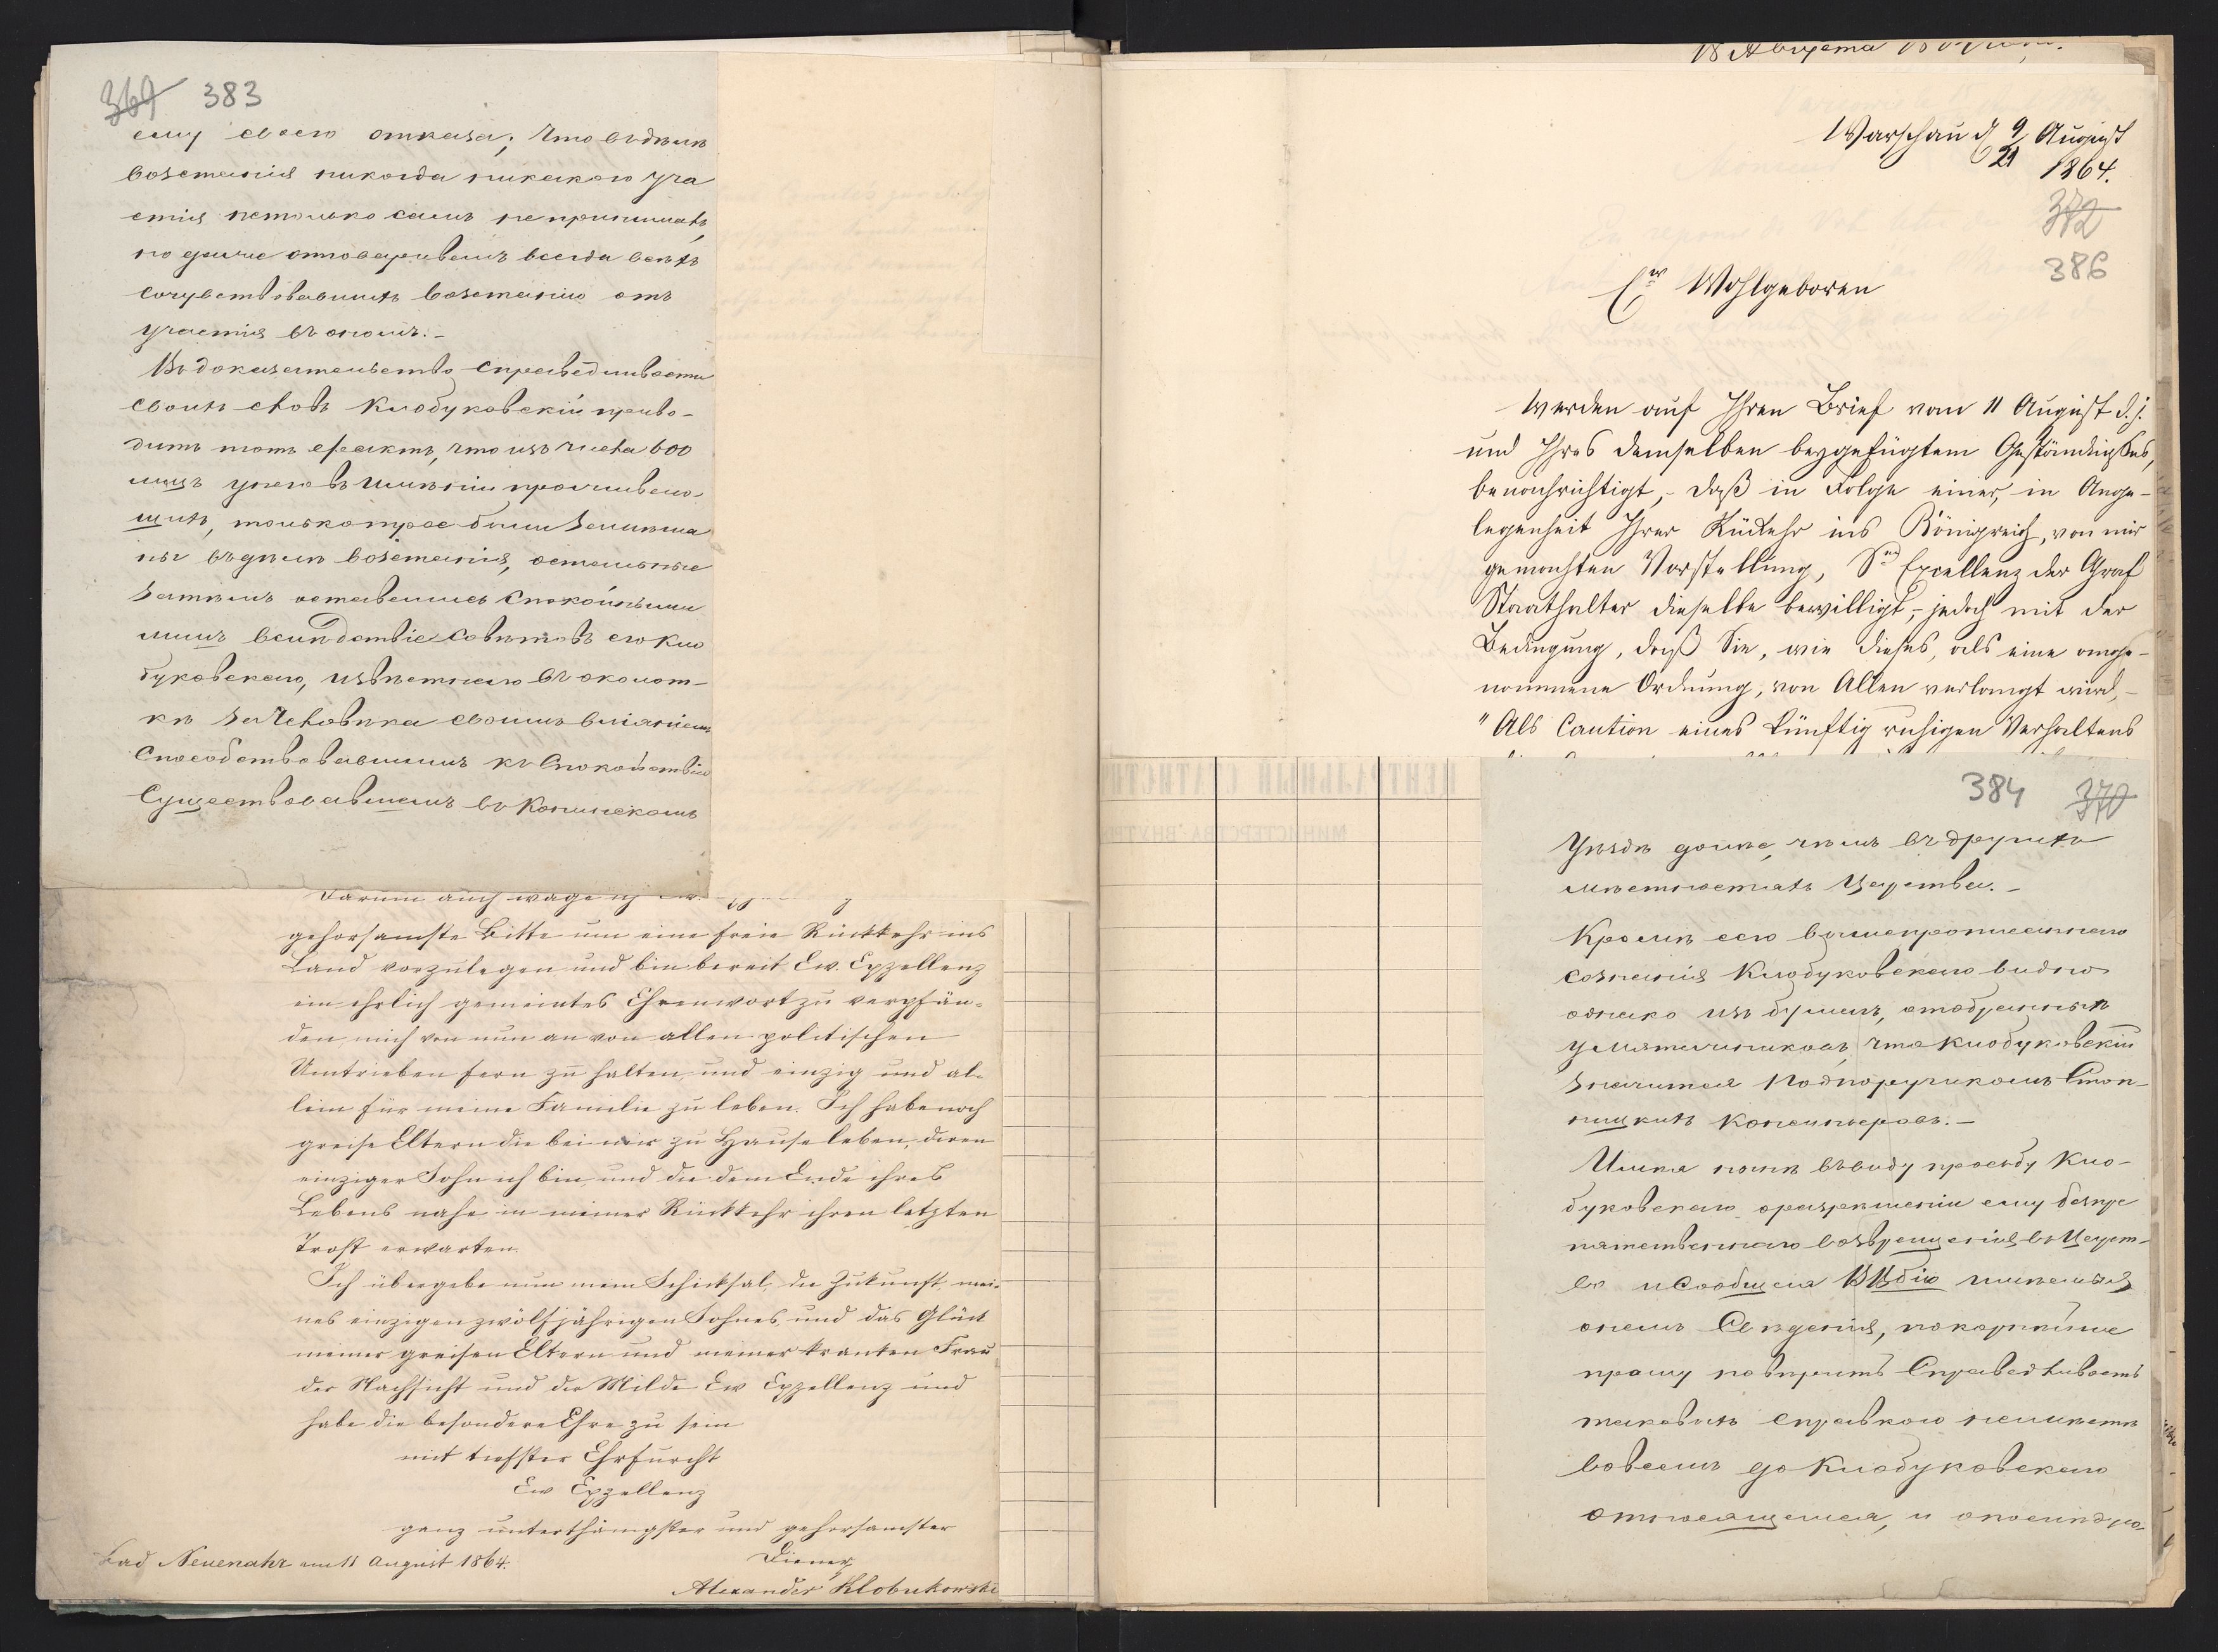 369 383
ему своего отказа; что въ дѣлѣ
возстанія никогда никакого уча
стія не только самъ не принималъ,
но даже отговаривалъ всегда всѣхъ
сочувствовавшихъ возстанію отъ
участія въ ономъ.-
Въ доказательство справедливости
своихъ словъ Клобуковскій приво-
дитъ тотъ фактъ, что изъ числа 600
лицъ у него въ имѣніи проживаю-
щихъ, только трое были замѣша
ны въ дѣлѣ возстанія, остальные
затѣмъ оставались спокойными
лишь вслѣдствіе совѣтовъ его Кло
буковскаго, извѣстнаго въ околот-
кѣ за человѣка своимъ вліяніемъ
способствовавшимъ къ спокойствію
существовавшему въ Конинскомъ
Darum auch wage ich
gehorsamste Bitte um eine freie Rückkehr ins
Land vorzulegen und bin bereit Ew. Exzellenz
ein ehrlich gemeintes Ehrenwort zu verpfän-
den, mich von nun an von allen politischen
Umtrieben fern zu halten, und einzig und al-
lein für meine Familie zu leben. Ich habe noch
greise Eltern die bei mir zu Hause leben, deren
einziger Sohn ich bin, und die dem Ende ihres
Lebens nahe in meiner Rückkehr ihren letzten
Trost erwarten.
Ich übergebe nun mein Schicksal, die Zukunft mei-
nes einzigen zwölfjährigen Sohnes, und das Glück
meiner greisen Eltern und meiner kranken Frau
der Nachsicht und der Milde Ew Exzellenz und
habe die besondere Ehre zu sein
mit tiefster Ehrfurcht
Ew Exzellenz
ganz unterthänigster und gehorsamster
Diener
Bad Neuenahr am 11 August 1864.
Alexander Klobukowski
18 Августа
Warschau d 9/21 August
1864.
372
386
Ew Wohlgeboren
werden auf Ihren Brief vom 11 August d. J.
und Ihres demselben beygefügtem Geständnißes,
benachrichtigt, daß in Folge einer, in Ange-
legenheit Ihrer Rückehr ins Königreich, von mir
gemachten Vorstellung, Se Excellenz der Graf
Staathalter dieselbe bewilligt,- jedoch mit der
Bedingung, daß Sie, wie dieses, als eine ange-
nommene Ordnung, von Allen verlangt wird,-
"Als Caution eines künftig ruhigen Verhaltens
384 370
Уѣздѣ долѣе, чѣмъ въ другихъ
мѣстностяхъ Царства.-
Кромѣ сего вышепрописаннаго
сознанія Клобуковскаго видно
однако изъ бумагъ, отобранныхъ
у мятежниковъ, что Клобуковскій
значится Подпоручикомъ
косиньеровъ.-
Имѣя нынѣ въ виду просьбу Кло-
буковскаго о разрѣшеніи ему безпре
пятственнаго возвращенія въ Царст-
во и сообщая ВВбію имѣемыя
о немъ Свѣденія, покорнѣйше
прошу повѣрить Справедливость
таковыхъ справкою на мѣстѣ
во всемъ до Клобуковскаго
относящемся, и о